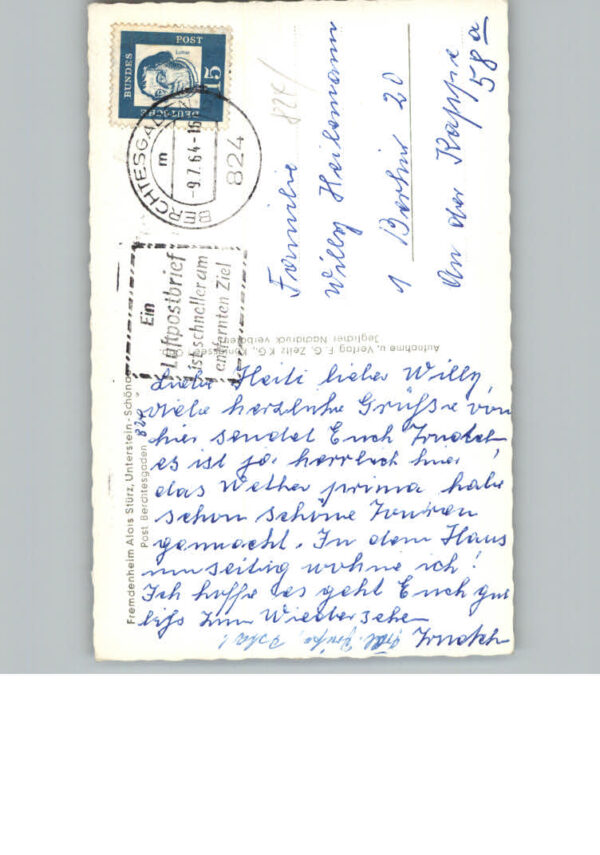 BUNDES
POST
DEUTSCHE
15
Luther
BERCHTESGADEN
m
-9.7.64-16
824
Ein
Luftpostbrief
ist schneller am
entfernten Ziel
824
Familie
Willy Heilemann
1 Berlin 20
An der Kappe
58a
Aufnahme u. Verlag F. G. Zeitz K.G., Königssee
Jeglicher Nachdruck verboten
Fremdenheim Alois Stürz, Unterstein-Schönau
Post Berchtesgaden
824
Liebe Heili lieber Willy,
viele herzliche Grüsse von
hier sendet Euch Trudch.
es ist ja herrlich hier,
das Wetter prima, habe
schon schöne Touren
gemacht. In dem Haus
umseitig wohne ich!
Ich hoffe es geht Euch gut
biss zum Wiedersehen
Trudch